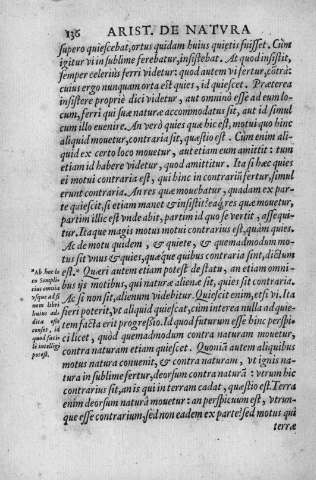 136 ARIST. DE NATVRA
supero quiescebat, ortus quidam huius quietis fuisset. Cùm
igitur vi in sublime ferebatur, insistebat. At quod insistit,
semper celerius ferri videtur: quod autem vi fertur, cōtrà:
cuius ergo nunquam orta est quies, id quiescet. Præterea
insistere propriè dici videtur, aut omninò esse ad eum lo-
cum, ferri qui suæ naturæ accommodatus sit, aut id simul
cum illo euenire. An verò quies quæ hic est, motui quo hinc
aliquid mouetur, contraria sit, quæstio est. Cùm enim ali-
quid ex certo loco mouetur, aut etiam eum amittit: tum
etiam id habere videtur, quod amittitur. Ita si hæc quies
ei motui contraria est, qui hinc in contrarií fertur, simul
erunt contraria. An res quæ mouebatur, quadam ex par-
te quiescit, si etiam manet & insistit? eáq; res quæ mouetur,
partim illic est vnde abit, partim id quo se vertit, assequi-
tur. Itaque magis motus motui contrarius est, quàm quies.
Ac de motu quidem, & quiete, & quemadmodum mo-
tus sit vnus & quies, quæque quibus contraria sint, dictum
est. Quæri autem etiam potest de statu, an etiam omni-
bus ijs motibus, qui naturæ alienæ sit, quies sit contraria.
Ac si non sit, alienum videbitur. Quiescit enim, etsi vi. Ita
fieri poterit, vt aliquid quiescat, cùm interea nulla ad quie-
tem facta erit progressio. Id quod futurum esse hinc perspi-
ci licet, quòd quemadmodum contra naturam mouetur,
contra naturam etiam quiescet. Quoniā autem aliquibus
motus natura conuenit, & contra naturam, vt ignis na-
tura in sublime fertur, deorsum contra naturā: vtrum hic
contrarius sit, an is qui in terram cadat, quæstio est. Terra
enim deorsum naturâ mouetur: an perspicuum est, vtrun-
que esse contrarium, sed non eadem ex parte? sed motus qui
terræ
Ab hoc lo
co Simpli-
cius omnia
vsque ad fi
nem libri
huius